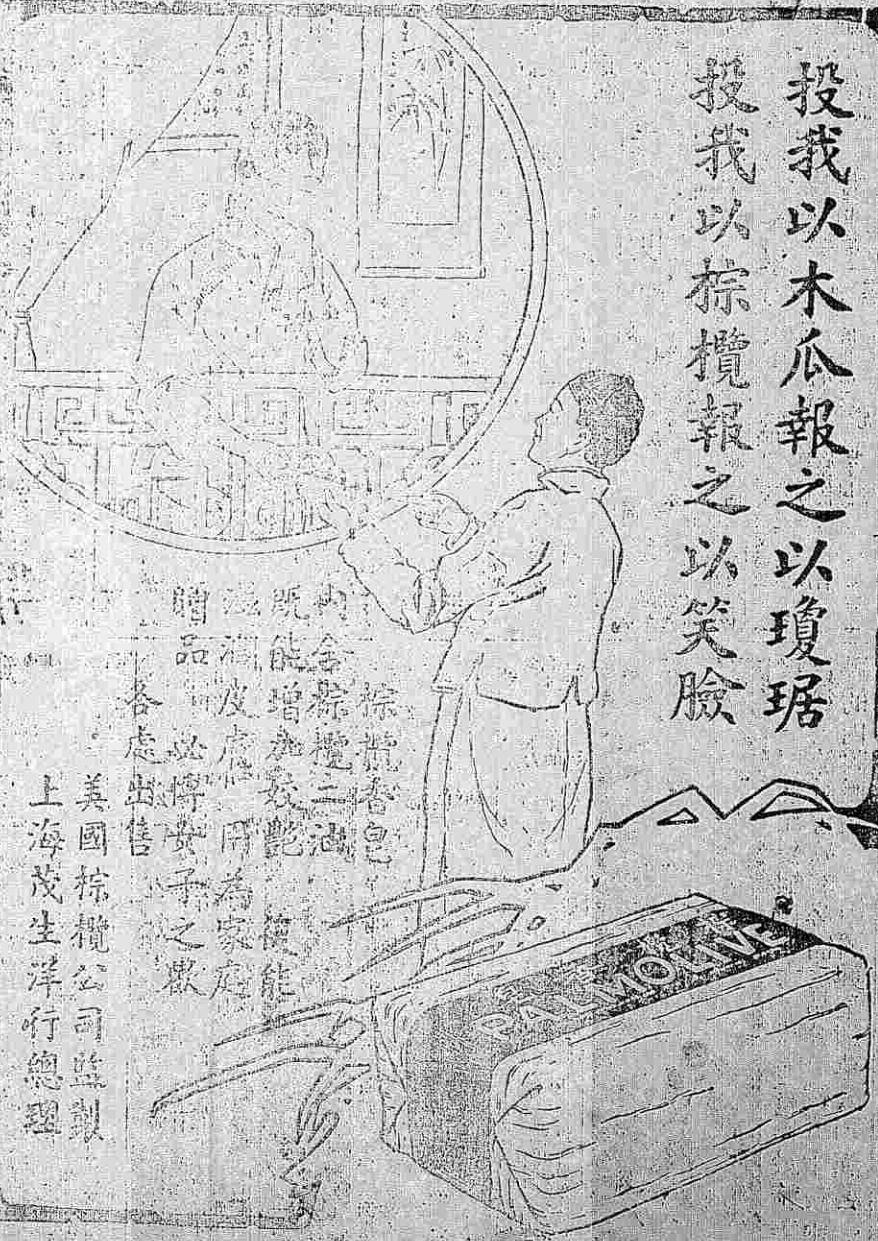 投我以木瓜報之以瓊琚
投我以棕欖報之以笑臉
棕欖香皂
內含棕欖二油
既能增加姣艷 使能
潤皮膚 用為家庭
贈品 必博女子之歡
各處出售
美國棕欖公司監製
上海茂生洋行總理
PALMOLIVE